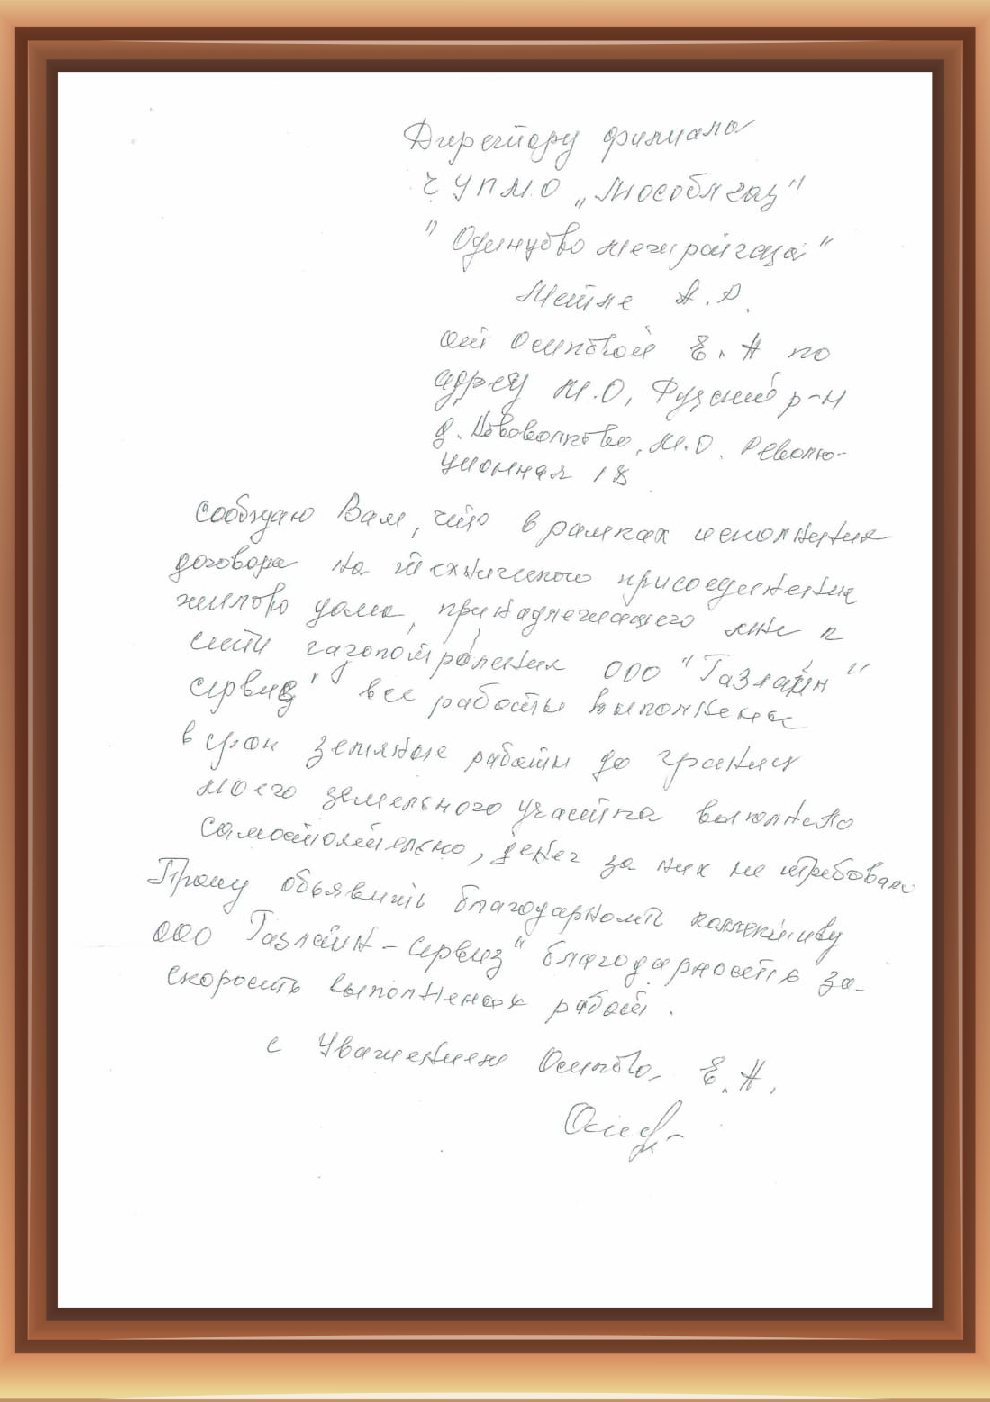 Директору филиала
ГУПМО „Мособлгаз"
"Одинцово межрайгаза"
А.Д.
от Осиповой Е. Н по
адресу М.О, Рузский р-н
д. Нововолково, М.О. Револю-
ционная 18
Сообщаю Вам, что в рамках исполнения
договора на технического присоединения
жилого дома, принадлежащего мне к
сети газопотрбления ООО "Газлайн"
Сервис" все работы выполнены
в срок земляные работы до границ
моего земельного участка выполнено
самостоятельно, денег за них не требовали
Прошу объявить благодарность коллективу
ООО Газлайн-Сервиз" благодарность за-
скорость выполненых работ.
с Уважением Осипова Е.Н.